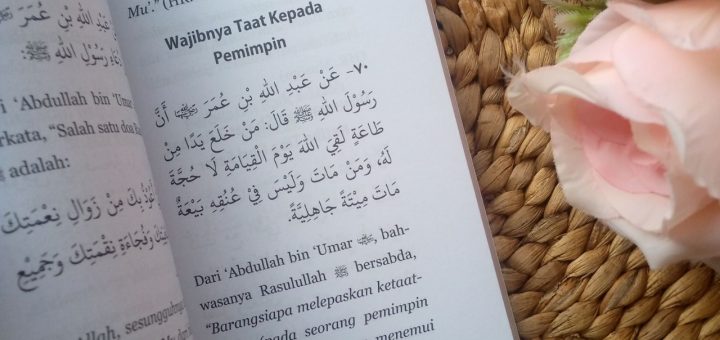 عَبْدِ اللهِ بْنِ عُمَرَ
رَسُوْلِ اللهِ ﷺ:
‘Abdullah bin ‘Umar
“Salah satu
adalah:
بِكَ مِنْ زَوَالِ نِعْمَتِكَ
وَفُجَاءَةِ نِقْمَتِكَ وَجَمِيْعِ
sesungguhnya
Mu’.”
Wajibnya Taat Kepada
Pemimpin
٧٠- عَنْ عَبْدِ اللهِ بْنِ عُمَرَ أَنَّ
رَسُوْلَ اللهِ ﷺ قَالَ: مَنْ خَلَعَ يَدًا مِنْ
طَاعَةٍ لَقِيَ اللهَ يَوْمَ الْقِيَامَةِ لَا حُجَّةَ
لَهُ، وَمَنْ مَاتَ وَلَيْسَ فِيْ عُنُقِهِ بَيْعَةٌ
مَاتَ مِيْتَةً جَاهِلِيَّةً.
Dari ‘Abdullah bin ‘Umar, bah-
wasanya Rasulullah ﷺ bersabda,
“Barangsiapa melepaskan ketaat-
seorang pemimpin
menemui